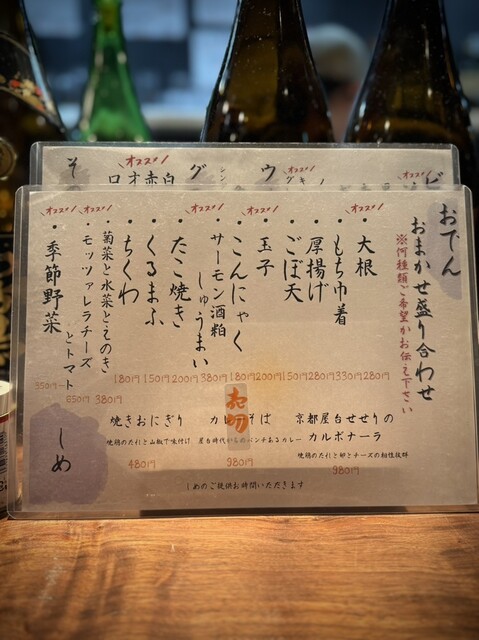 おでん
おまかせ盛り合わせ
※何種類ご希望かお伝え下さい
オススメ
・大根
280円
・もち巾着
330円
・厚揚げ
280円
・ごぼ天
150円
オススメ
・玉子
200円
・こんにゃく
180円
オススメ
・サーモン酒粕しゅうまい
380円
・たこ焼き
200円
・くるまふ
150円
・ちくわ
180円
オススメ
・菊菜と水菜とえのき
380円
オススメ
・モッツァレラチーズとトマト
650円
オススメ
・季節野菜
350円
しめ
京都屋台せせりの
カルボナーラ
焼鶏のたれと卵とチーズの相性抜群
980円
カレーそば
売切
屋台時代からのパンチあるカレー
980円
焼きおにぎり
焼鶏のたれと山椒で味付け
480円
しめのご提供お時間いただきます
オススメ
オススメ
オススメ
ロゼ赤白